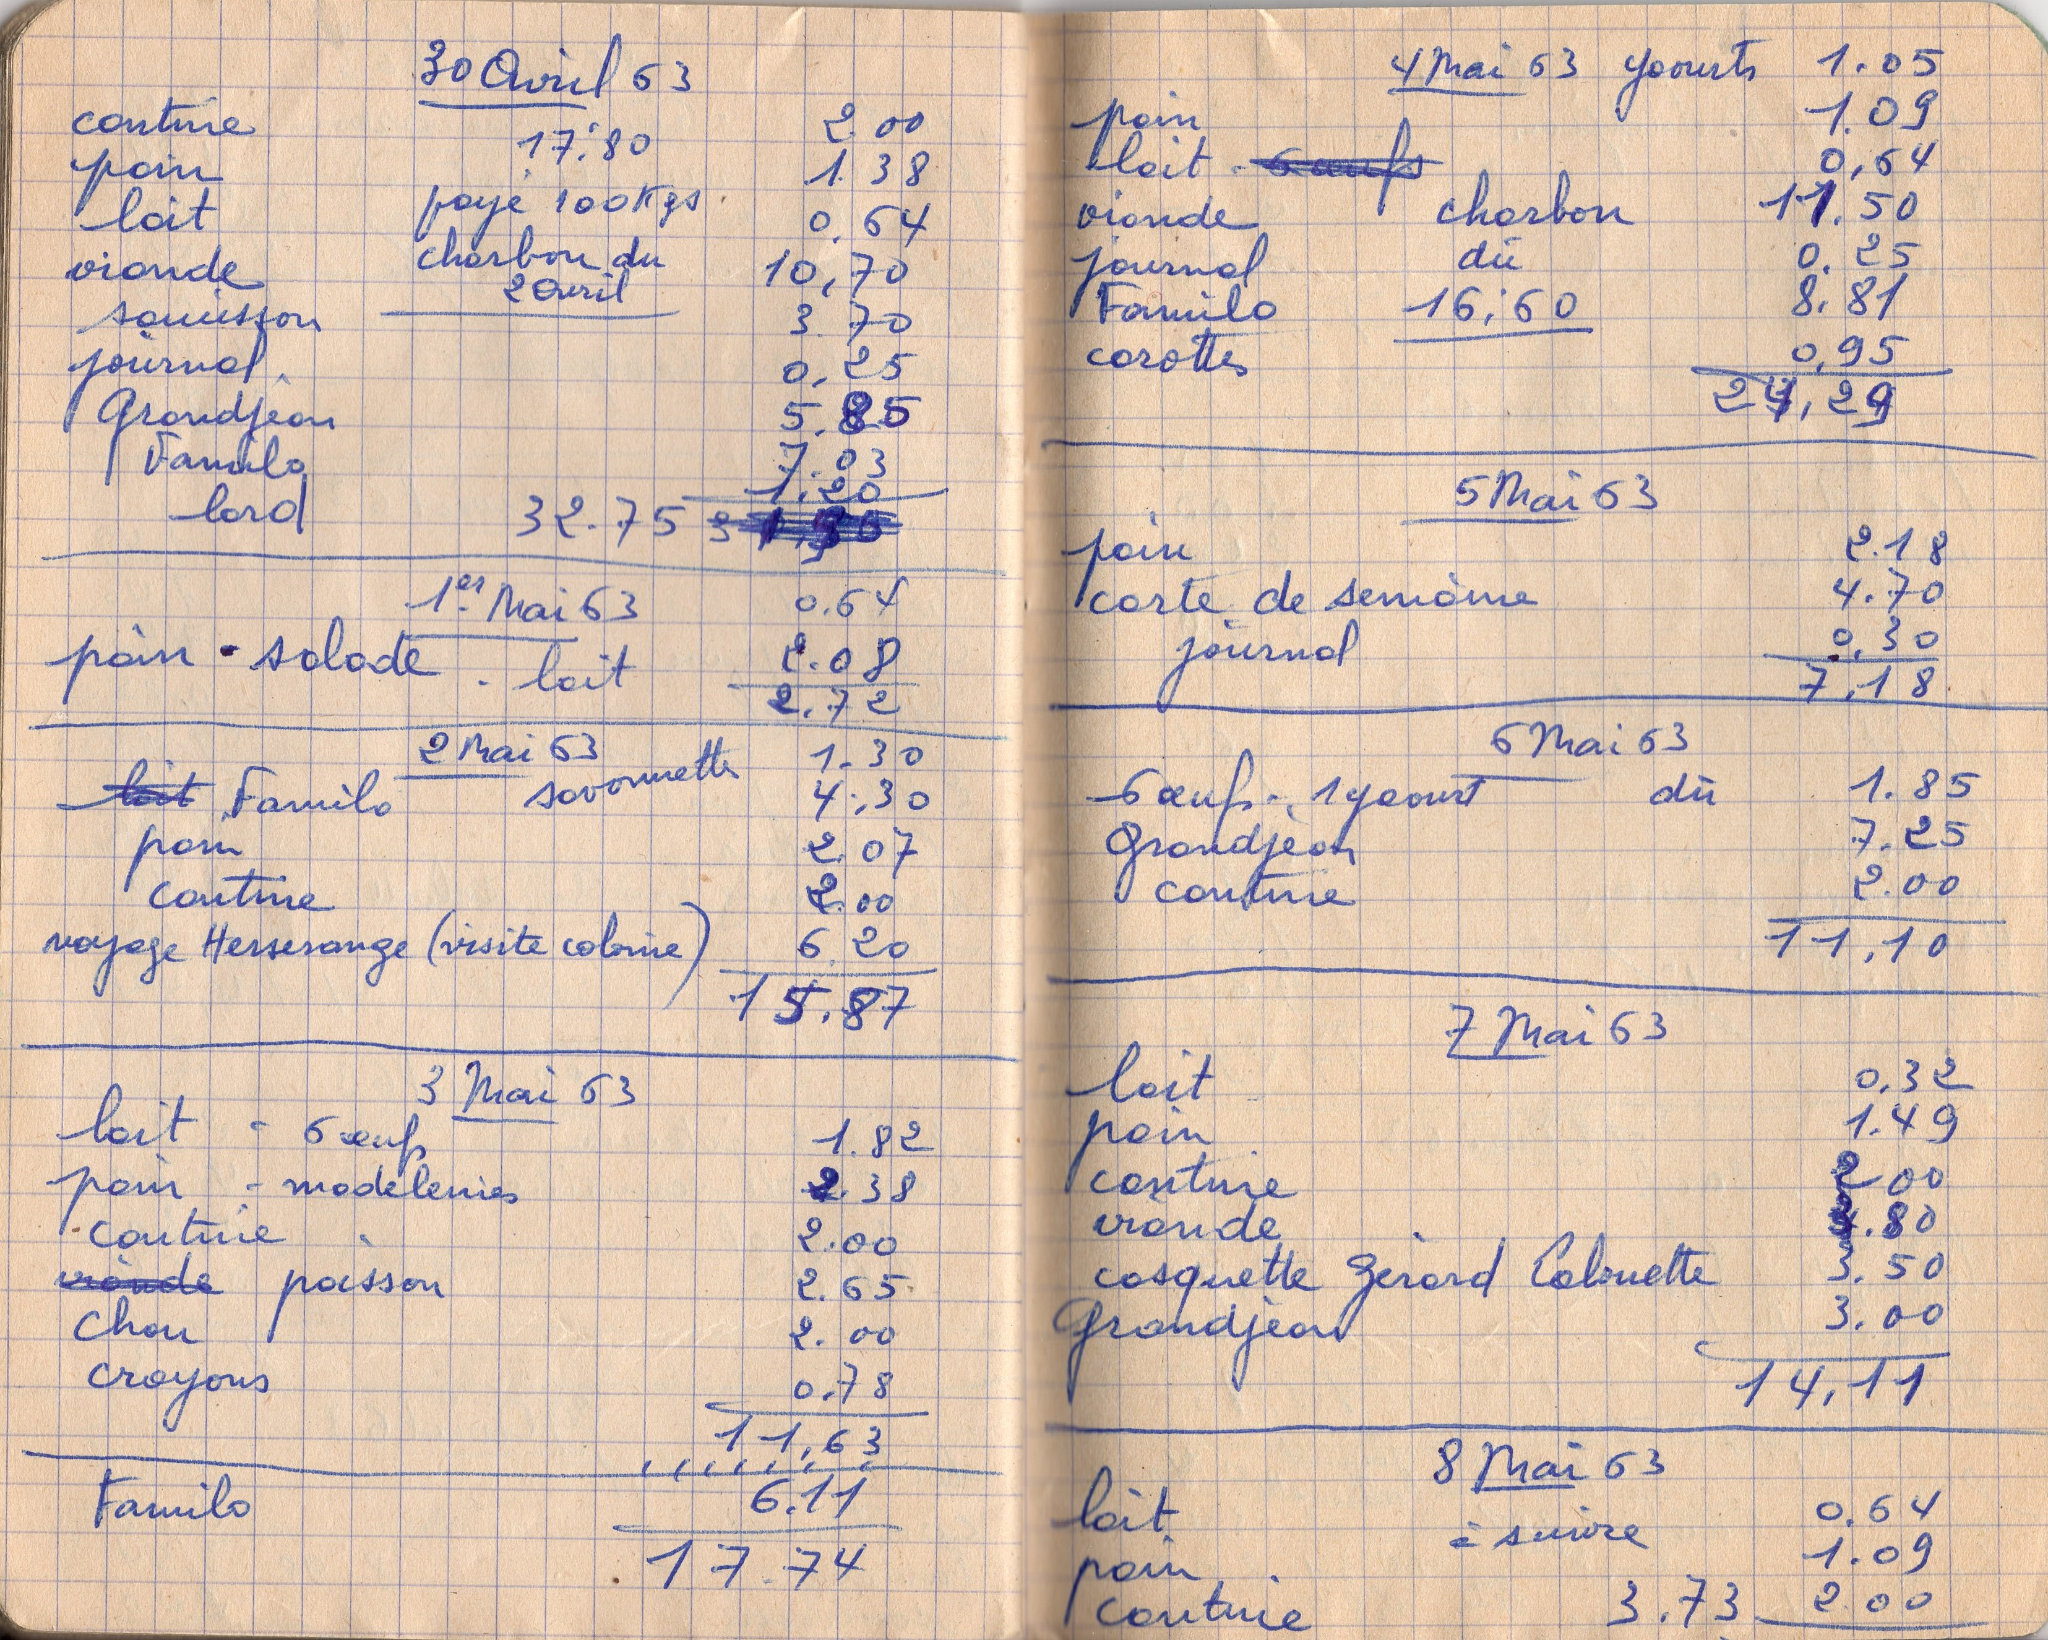 30 Avril 63
couture 2.00
17,80
pain 1.38
lait payé 100 Kgs 0,64
viande charbon du 10,70
2 Avril
saucisson 3.70
journal 0,25
Grandjean 5.85
Familo 7.03
1,20
lard 32.75
1er Mai 63 0.64
pain - salade - lait 2.08
2,72
2 Mai 63 savonnette 1.30
lait Familo 4,30
pain 2.07
couture 2.00
voyage Herserange (visite colonie) 6.20
15.87
3 Mai 63
lait - 6 œufs 1.82
pain - madeleines 2.38
couture 2.00
viande poisson 2.65
chou 2.00
crayons 0.78
11,63
Familo 6.11
17.74
4 Mai 63 yaourts 1.05
pain 1.09
lait - 6 œufs 0,64
viande charbon 11.50
journal dû 0.25
Familo 16,60 8.81
carottes 0,95
24,29
5 Mai 63
pain 2.18
carte de semaine 4.70
journal 0.30
7,18
6 Mai 63
6 œufs - 1 yaourt dû 1.85
Grandjean 7.25
couture 2.00
11,10
7 Mai 63
lait 0,32
pain 1.49
couture 2.00
viande 3.80
casquette Gérard 3.50
Grandjean 3.00
14,11
8 Mai 63
lait 0.64
à suivre
pain 1.09
couture 3.73 2.00